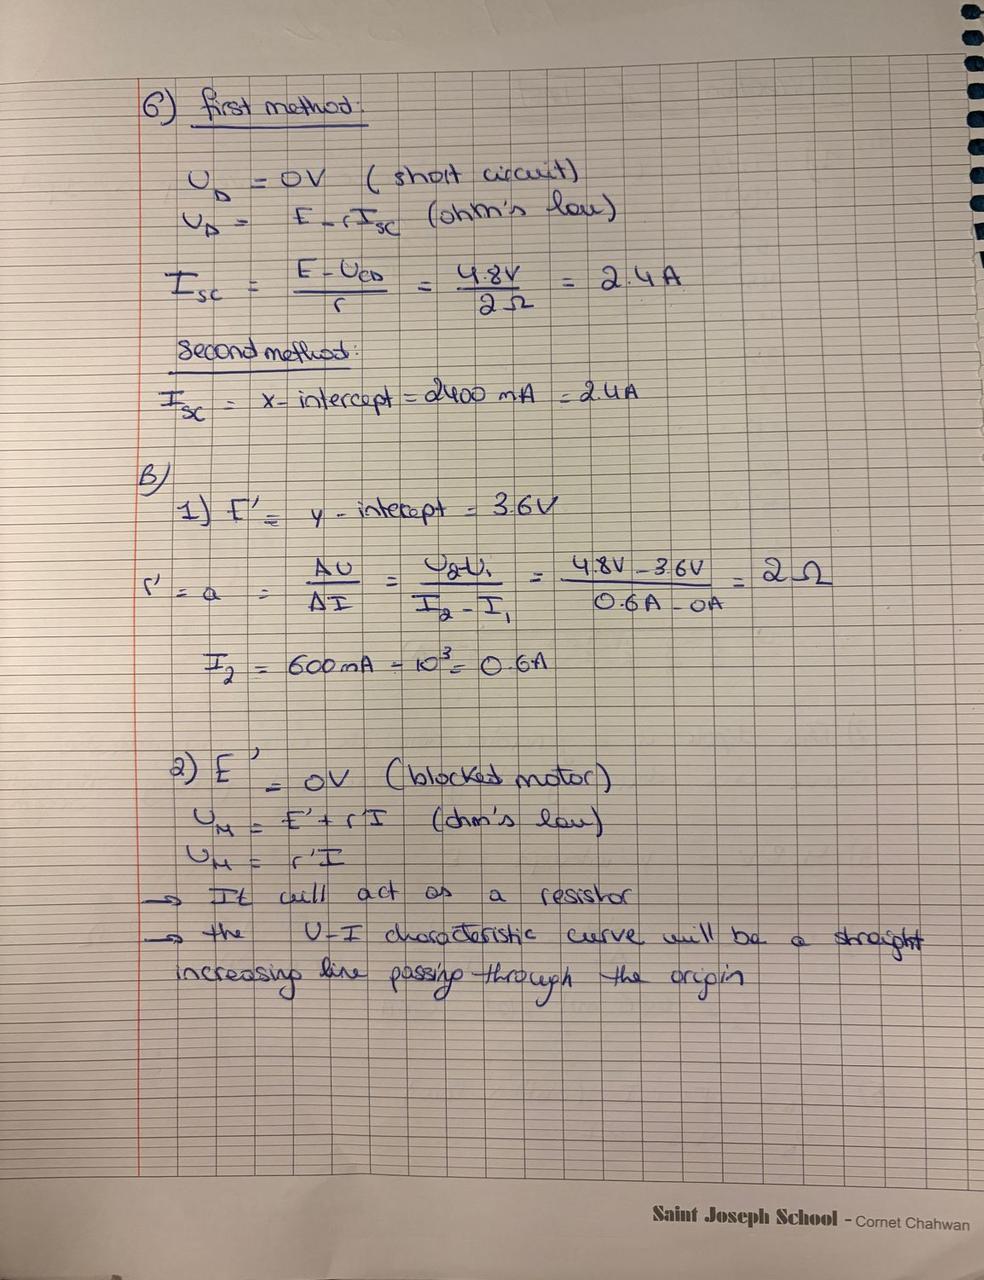 6) first method:
U_D = 0V (short circuit)
U_D = E - rI_SC (ohm's law)
I_SC = (E - U_CD)/r = 4.8V/2Ω = 2.4A
Second method:
I_SC = x-intercept = 2400 mA = 2.4A
B)
1) E' = y-intecept = 3.6V
r' = a = ΔU/ΔI = (U₂-U₁)/(I₂-I₁) = (4.8V - 3.6V)/(0.6A - 0A) = 2Ω
I₂ = 600mA ÷ 10³ = 0.6A
2) E' = 0V (blocked motor)
U_M = E' + r'I (ohm's law)
U_M = r'I
→ It will act as a resistor
→ the U-I characteristic curve will be a straight
increasing line passing through the origin
Saint Joseph School - Cornet Chahwan